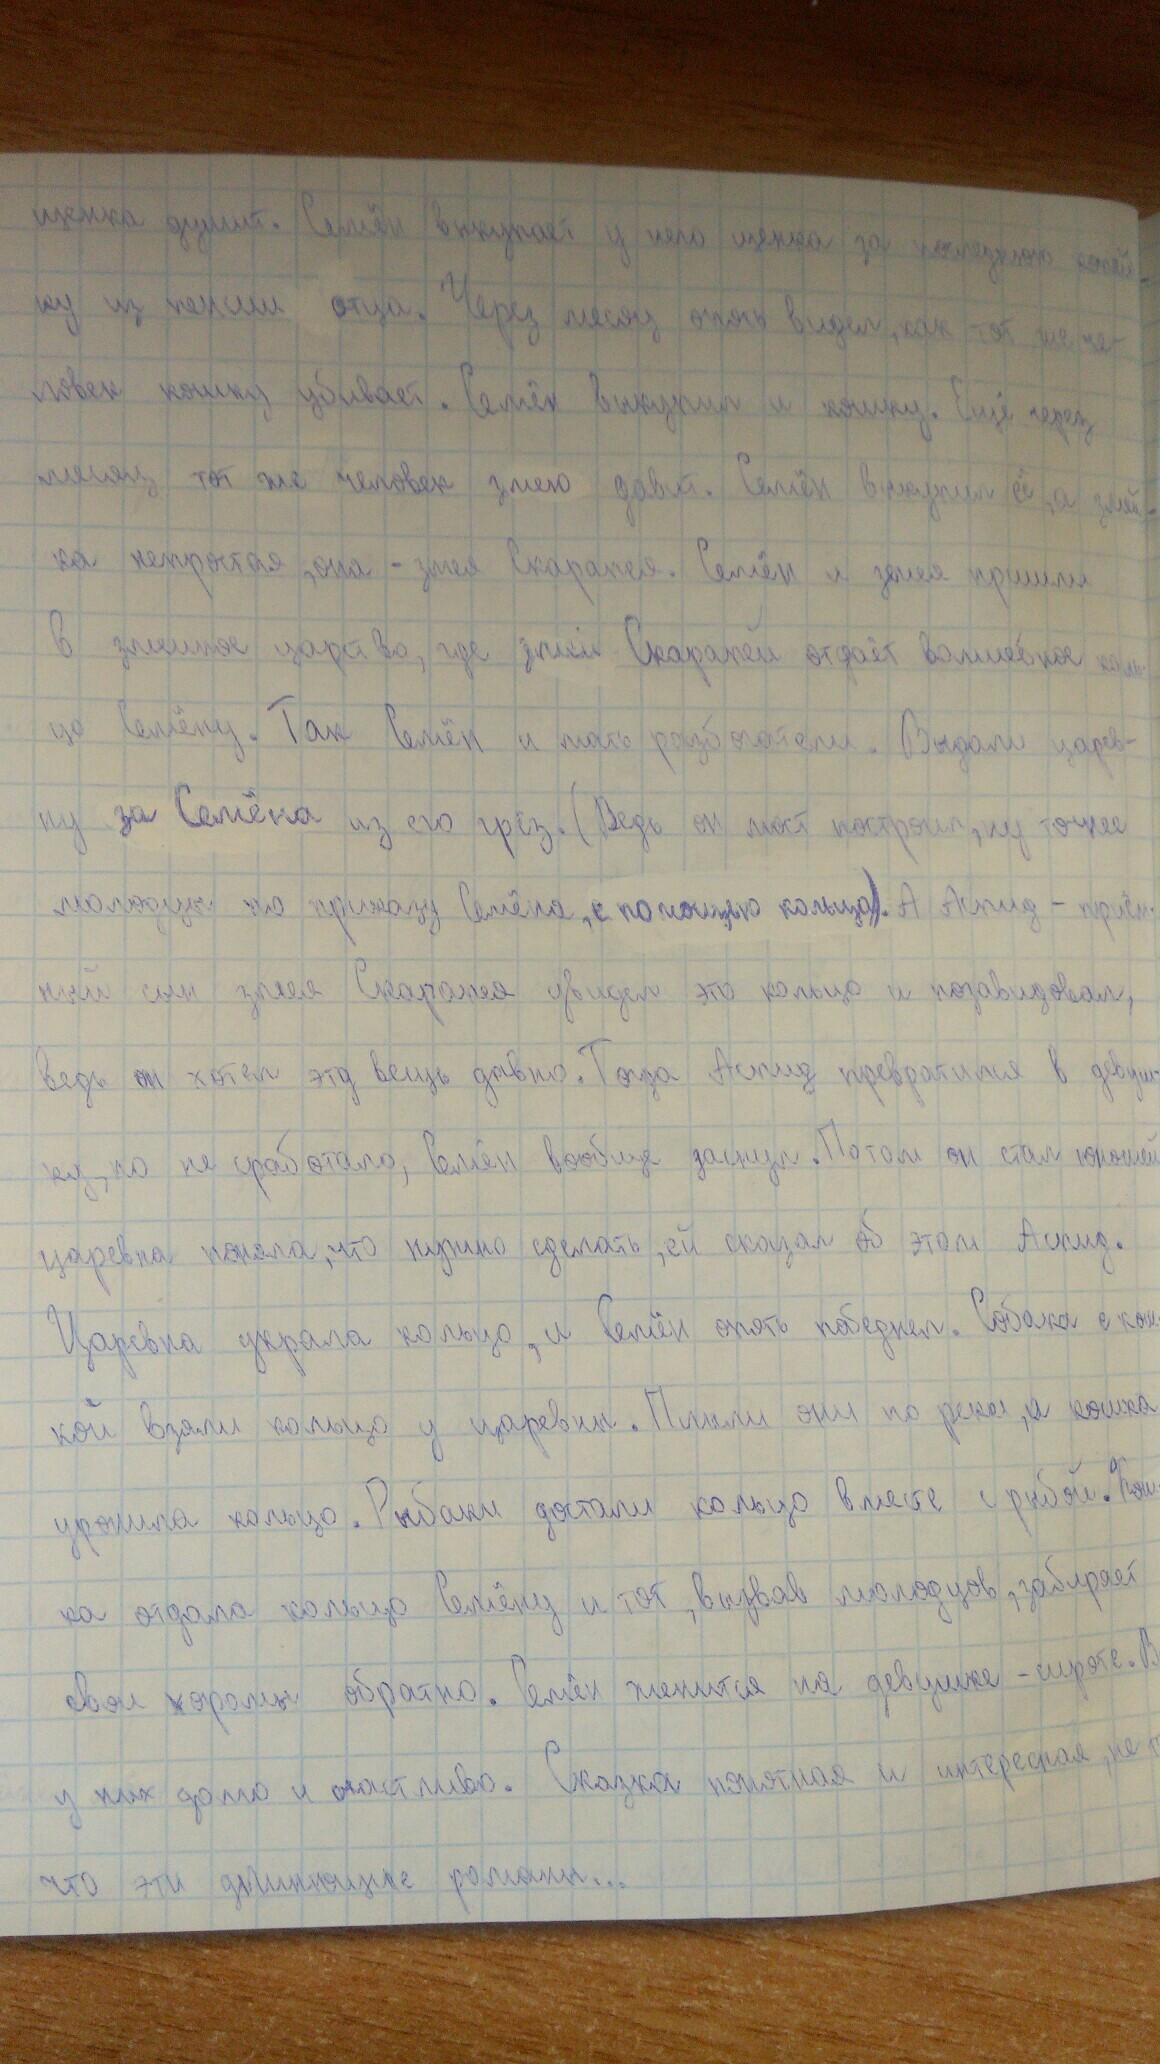 щенка душит. Семён выкупает у него щенка за последнюю копей-
ку из пенсии отца. Через месяц опять видел, как тот же че-
ловек кошку убивает. Семён выкупил и кошку. Ещё через
месяц тот же человек змею давит. Семён выкупил её, а змей-
ка непростая, она - змея Скарапея. Семён и змея пришли
в змеиное царство, где змей Скарапей отдаёт волшебное коль-
цо Семёну. Так Семён и мать разбогатели. Выдали царев-
ну за Семёна из его грёз. (Ведь он мост построил, ну точнее
молодцы по приказу Семёна, с помощью кольца). А Аспид - приём-
ный сын змея Скарапея увидел это кольцо и позавидовал,
ведь он хотел эту вещь давно. Тогда Аспид превратился в девуш-
ку, но не сработало, Семён вообще заснул. Потом он стал юношей
царевна поняла, что нужно сделать, ей сказал об этом Аспид.
Царевна украла кольцо, и Семён опять победнел. Собака с кош-
кой взяли кольцо у царевны. Плыли они по реке, а кошка
уронила кольцо. Рыбаки достали кольцо вместе с рыбой. Кош-
ка отдала кольцо Семёну и тот, вызвав молодцов, забирает
свои хоромы обратно. Семён женится на девушке - сироте. В
у них долго и счастливо. Сказка понятная и интересная, не
что эти длиннющие романы...